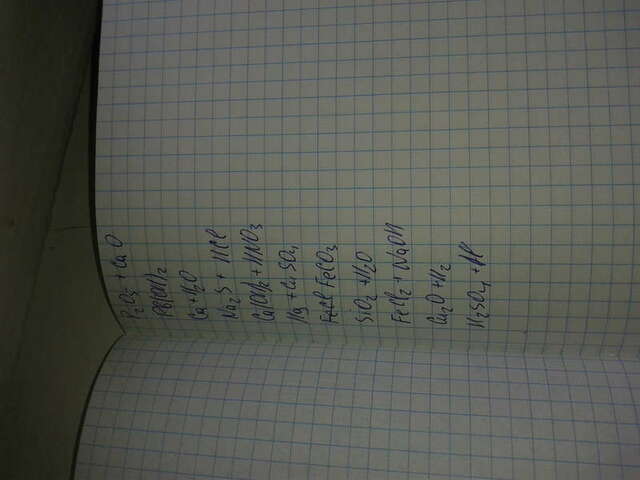 P₂O₅ + CaO
Pb(OH)₂
Ca + H₂O
Na₂S + HCl
Ca(OH)₂ + HNO₃
Hg + CaSO₄
FeCO₃
SiO₂ + H₂O
FeCl₂ + NaOH
Cu₂O + H₂
H₂SO₄ + Al